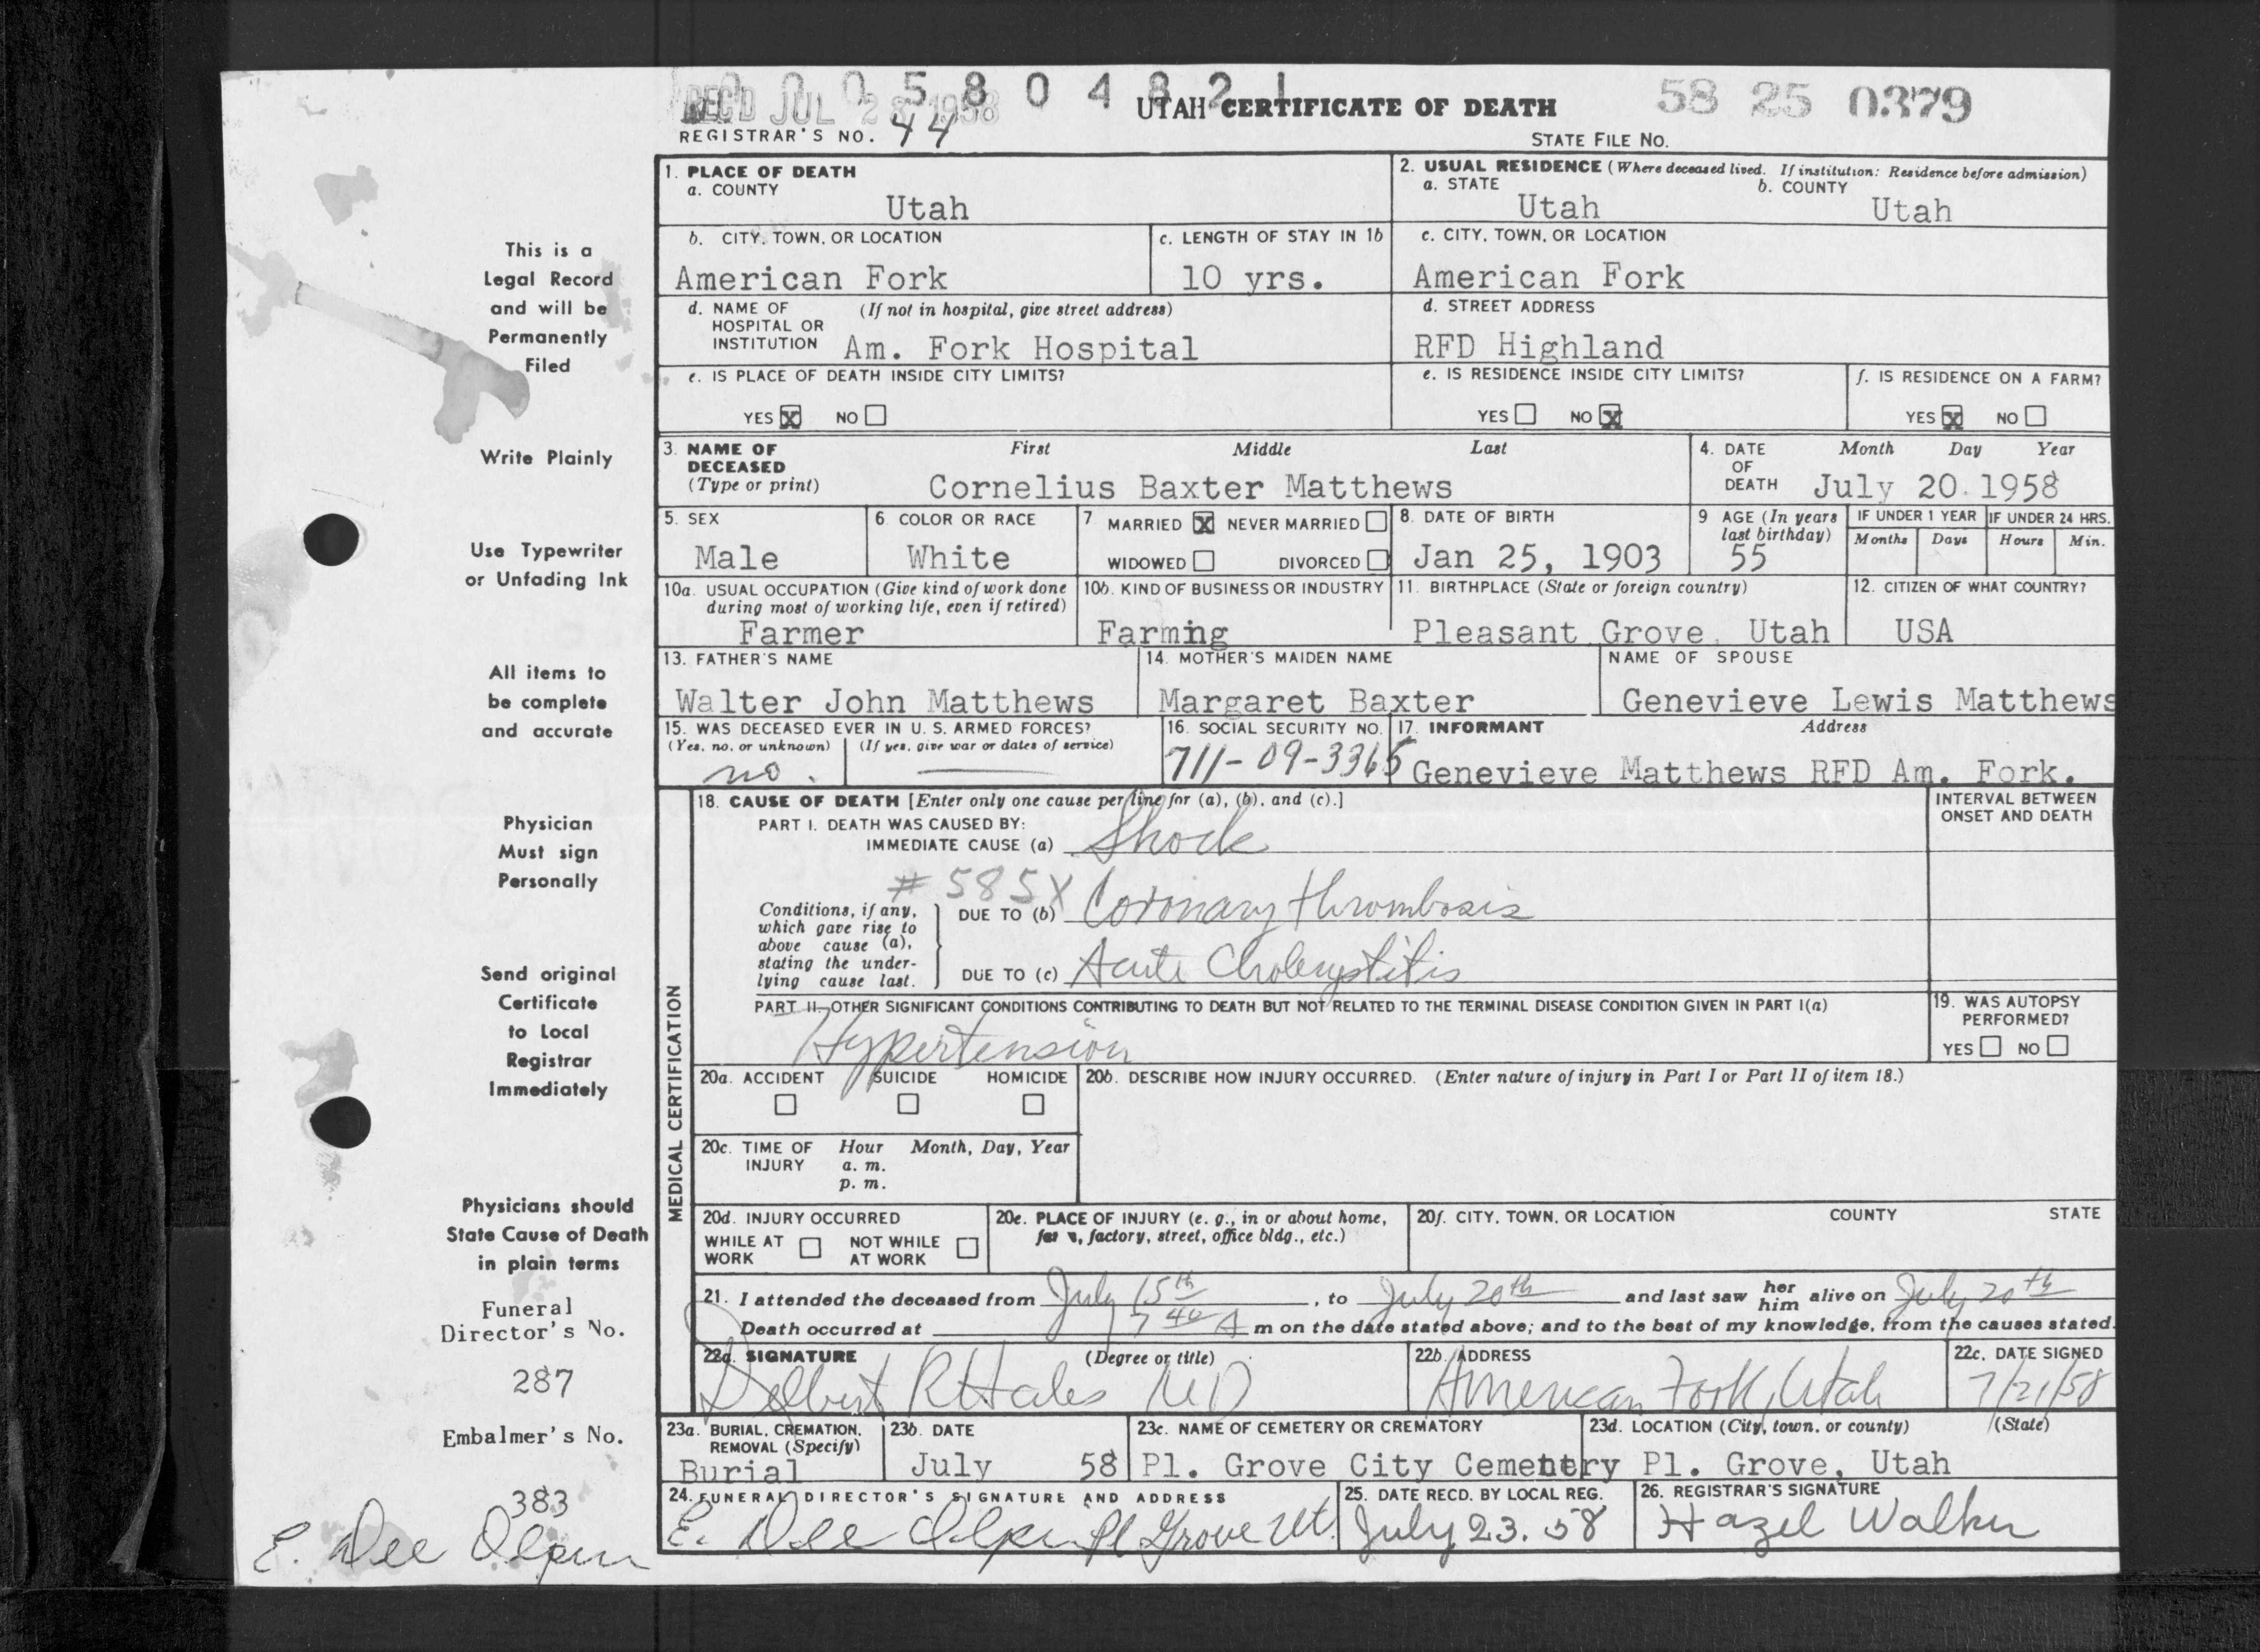 0 0 0 5 8 0 4 8 2 1
REC'D JUL 28 1958
UTAH CERTIFICATE OF DEATH
58 25 0379
REGISTRAR'S NO. 44
STATE FILE No.
1. PLACE OF DEATH
a. COUNTY
Utah
2. USUAL RESIDENCE (Where deceased lived. If institution: Residence before admission)
a. STATE
Utah
b. COUNTY
Utah
b. CITY, TOWN, OR LOCATION
American Fork
c. LENGTH OF STAY IN 1b
10 yrs.
c. CITY, TOWN, OR LOCATION
American Fork
d. NAME OF HOSPITAL OR INSTITUTION
(If not in hospital, give street address)
Am. Fork Hospital
d. STREET ADDRESS
RFD Highland
e. IS PLACE OF DEATH INSIDE CITY LIMITS?
YES X NO
e. IS RESIDENCE INSIDE CITY LIMITS?
YES NO X
f. IS RESIDENCE ON A FARM?
YES X NO
3. NAME OF DECEASED (Type or print)
First Middle Last
Cornelius Baxter Matthews
4. DATE OF DEATH
Month Day Year
July 20. 1958
5. SEX
Male
6 COLOR OR RACE
White
7 MARRIED X NEVER MARRIED
WIDOWED DIVORCED
8. DATE OF BIRTH
Jan 25, 1903
9 AGE (In years last birthday)
55
IF UNDER 1 YEAR
Months Days
IF UNDER 24 HRS.
Hours Min.
10a. USUAL OCCUPATION (Give kind of work done during most of working life, even if retired)
Farmer
10b. KIND OF BUSINESS OR INDUSTRY
Farming
11. BIRTHPLACE (State or foreign country)
Pleasant Grove, Utah
12. CITIZEN OF WHAT COUNTRY?
USA
13. FATHER'S NAME
Walter John Matthews
14. MOTHER'S MAIDEN NAME
Margaret Baxter
NAME OF SPOUSE
Genevieve Lewis Matthews
15. WAS DECEASED EVER IN U. S. ARMED FORCES?
(Yes, no, or unknown) (If yes, give war or dates of service)
no.
16. SOCIAL SECURITY NO.
711-09-3365
17. INFORMANT Address
Genevieve Matthews RFD Am. Fork.
MEDICAL CERTIFICATION
18. CAUSE OF DEATH [Enter only one cause per line for (a), (b), and (c).]
INTERVAL BETWEEN ONSET AND DEATH
PART I. DEATH WAS CAUSED BY:
IMMEDIATE CAUSE (a) Shock
# 585X
Conditions, if any, which gave rise to above cause (a), stating the underlying cause last.
DUE TO (b) Coronary thrombosis
DUE TO (c) Acute Cholecystitis
PART II—OTHER SIGNIFICANT CONDITIONS CONTRIBUTING TO DEATH BUT NOT RELATED TO THE TERMINAL DISEASE CONDITION GIVEN IN PART I(a)
Hypertension
19. WAS AUTOPSY PERFORMED?
YES NO
20a. ACCIDENT SUICIDE HOMICIDE
20b. DESCRIBE HOW INJURY OCCURRED. (Enter nature of injury in Part I or Part II of item 18.)
20c. TIME OF INJURY
Hour Month, Day, Year
a. m.
p. m.
20d. INJURY OCCURRED
WHILE AT WORK NOT WHILE AT WORK
20e. PLACE OF INJURY (e. g., in or about home, factory, street, office bldg., etc.)
20f. CITY, TOWN, OR LOCATION COUNTY STATE
21. I attended the deceased from July 15th, to July 20th and last saw her him alive on July 20th
Death occurred at 7 40 A m on the date stated above; and to the best of my knowledge, from the causes stated.
22a. SIGNATURE (Degree or title)
Delbert R Hales MD
22b. ADDRESS
American Fork, Utah
22c. DATE SIGNED
7/21/58
23a. BURIAL, CREMATION, REMOVAL (Specify)
Burial
23b. DATE
July 58
23c. NAME OF CEMETERY OR CREMATORY
Pl. Grove City Cemetery
23d. LOCATION (City, town, or county) (State)
Pl. Grove, Utah
24. FUNERAL DIRECTOR'S SIGNATURE AND ADDRESS
E. Dee Olpin Pl Grove Ut.
25. DATE RECD. BY LOCAL REG.
July 23. 58
26. REGISTRAR'S SIGNATURE
Hazel Walker
This is a
Legal Record
and will be
Permanently
Filed
Write Plainly
Use Typewriter
or Unfading Ink
All items to
be complete
and accurate
Physician
Must sign
Personally
Send original
Certificate
to Local
Registrar
Immediately
Physicians should
State Cause of Death
in plain terms
Funeral
Director's No.
287
Embalmer's No.
383
E. Dee Olpin